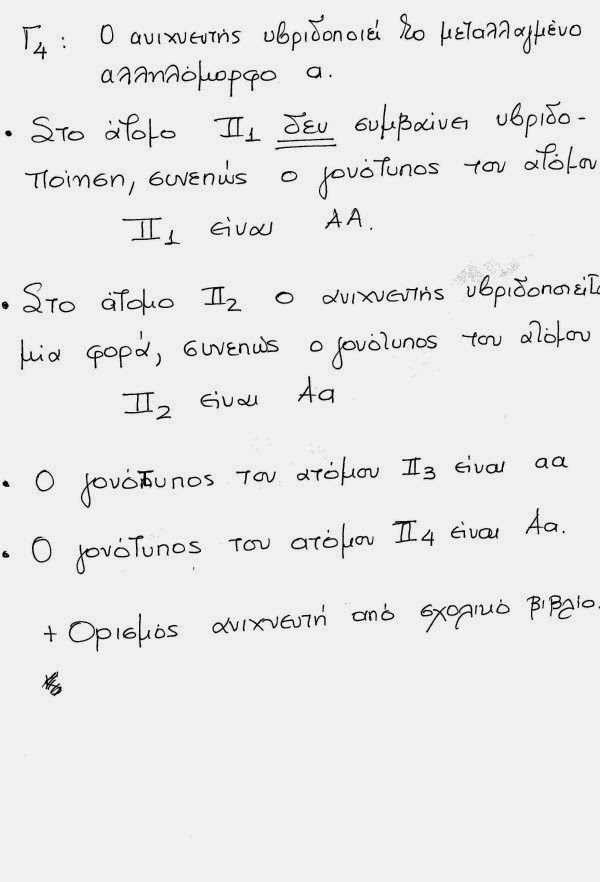 Γ4 : Ο ανιχνευτής υβριδοποιεί το μεταλλαγμένο
αλληλόμορφο α.
• Στο άτομο II1 δεν συμβαίνει υβριδο-
ποίηση, συνεπώς ο γονότυπος του ατόμου
II1 είναι ΑΑ.
• Στο άτομο II2 ο ανιχνευτής υβριδοποιείτ
μία φορά, συνεπώς ο γονότυπος του ατόμου
II2 είναι Αα
• Ο γονότυπος του ατόμου II3 είναι αα
• Ο γονότυπος του ατόμου II4 είναι Αα.
+ Ορισμός ανιχνευτή από σχολικό βιβλίο.